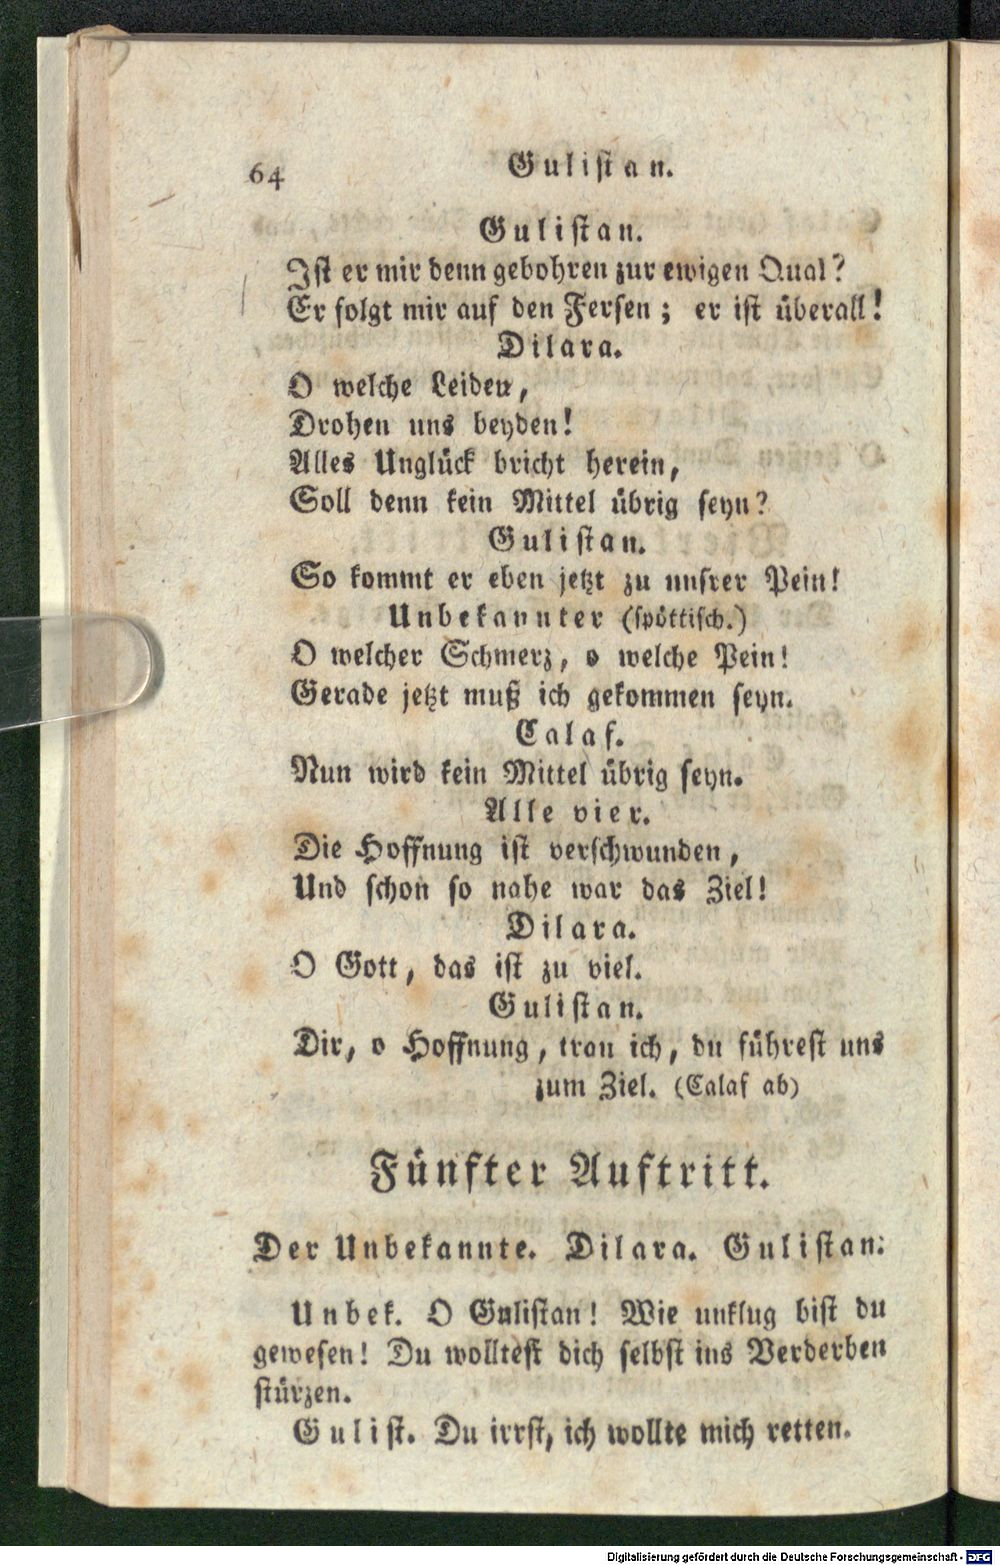 64 Gulistan.
Gulistan.
Ist er mir denn gebohren zur ewigen Qual?
Er folgt mir auf den Fersen; er ist überall!
Dilara.
O welche Leiden,
Drohen uns beyden!
Alles Unglück bricht herein,
Soll denn kein Mittel übrig seyn?
Gulistan.
So kommt er eben jetzt zu unsrer Pein!
Unbekannter (spöttisch.)
O welcher Schmerz, o welche Pein!
Gerade jetzt muß ich gekommen seyn.
Calaf.
Nun wird kein Mittel übrig seyn.
Alle vier.
Die Hoffnung ist verschwunden,
Und schon so nahe war das Ziel!
Dilara.
O Gott, das ist zu viel.
Gulistan.
Dir, o Hoffnung, trau ich, du führest uns
zum Ziel. (Calaf ab)
Fünfter Auftritt.
Der Unbekannte. Dilara. Gulistan.
Unbek. O Gulistan! Wie unklug bist du
gewesen! Du wolltest dich selbst ins Verderben
stürzen.
Gulist. Du irrst, ich wollte mich retten.
Digitalisierung gefördert durch die Deutsche Forschungsgemeinschaft - DFG